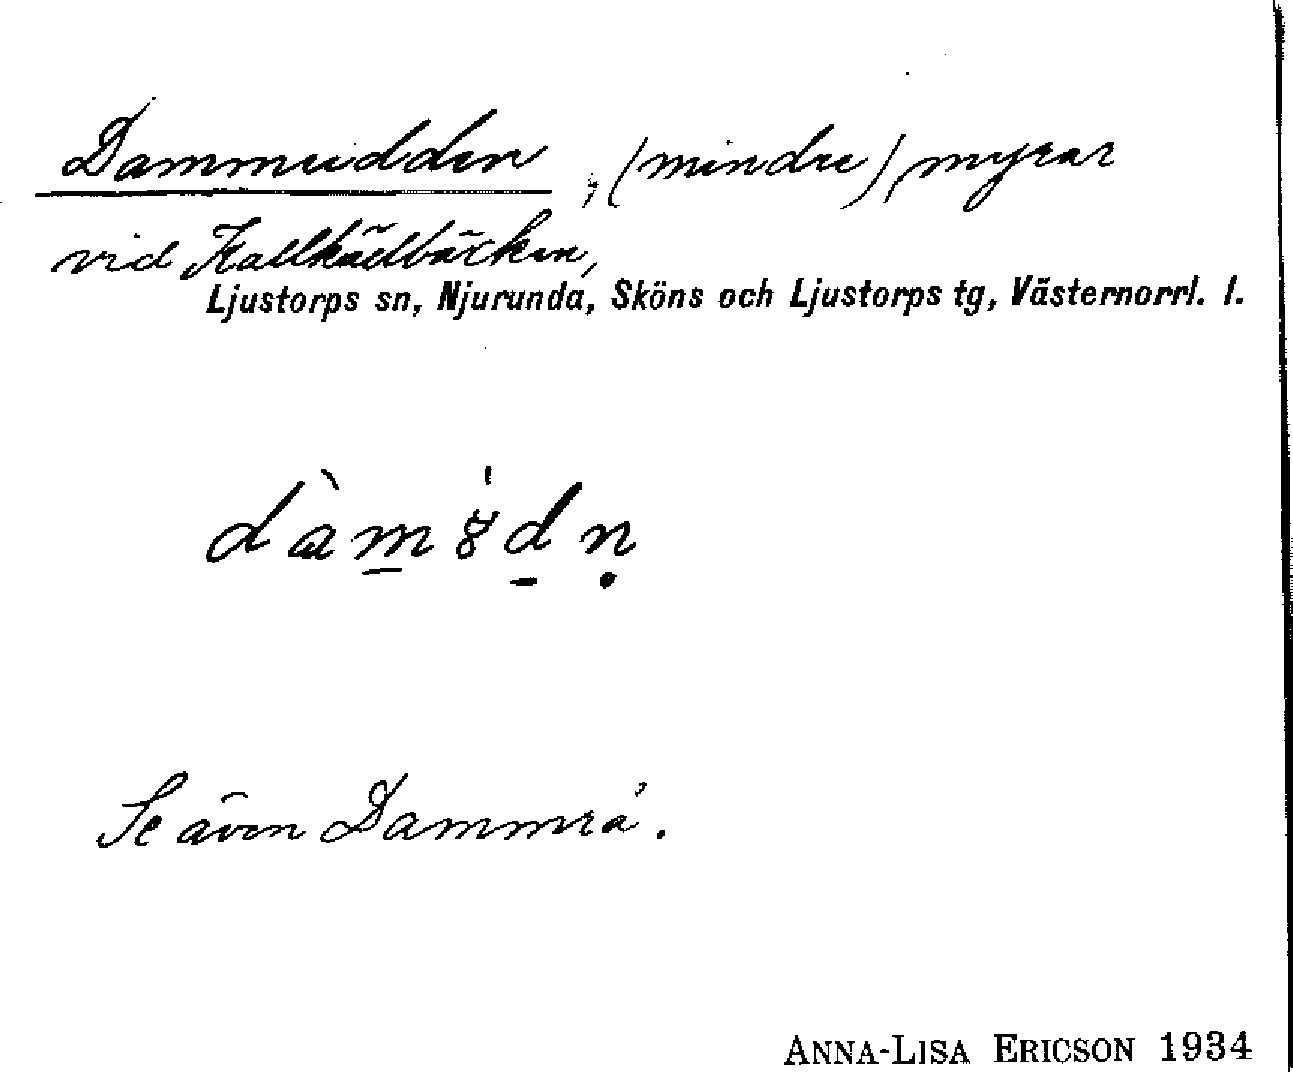 Dammudden, (mindre) myrar
vid Kallkällbäcken,
Ljustorps sn, Njurunda, Sköns och Ljustorps tg, Västernorrl. l.
Se även Dammrå.
ANNA-LISA ERICSON 1934